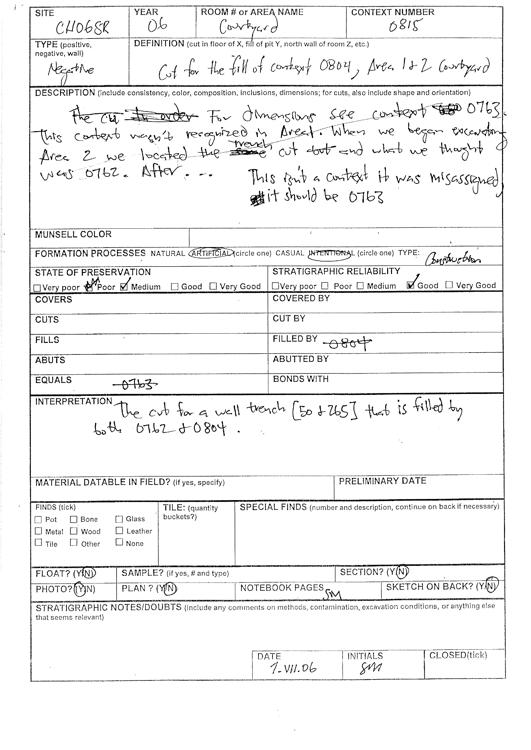 SITE YEAR ROOM # or AREA NAME CONTEXT NUMBER
CH06SR 06 Courtyard 0815
TYPE (positive, negative, wall) DEFINITION (cut in floor of X, fill of pit Y, north wall of room Z, etc.)
Negative Cut for the fill of context 0804, Area 1 & 2 Courtyard
DESCRIPTION (include consistency, color, composition, inclusions, dimensions; for cuts, also include shape and orientation)
The cu in order For dimensions see context 0763.
This context wasn't recognized in Area 1. When we began excavating
Area 2 we located the trench cut and what we thought
was 0762. After... This isn't a context it was misassigned
it should be 0763
MUNSELL COLOR
FORMATION PROCESSES NATURAL ARTIFICIAL (circle one) CASUAL INTENTIONAL (circle one) TYPE: Construction
STATE OF PRESERVATION STRATIGRAPHIC RELIABILITY
Very poor Poor Medium Good Very Good Very poor Poor Medium Good Very Good
COVERS COVERED BY
CUTS CUT BY
FILLS FILLED BY 0804
ABUTS ABUTTED BY
EQUALS 0763 BONDS WITH
INTERPRETATION The cut for a wall trench [50 & 265] that is filled by
both 0762 & 0804.
MATERIAL DATABLE IN FIELD? (if yes, specify) PRELIMINARY DATE
FINDS (tick) TILE: (quantity buckets?) SPECIAL FINDS (number and description, continue on back if necessary)
Pot Bone Glass
Metal Wood Leather
Tile Other None
FLOAT? (Y/N) SAMPLE? (if yes, # and type) SECTION? (Y/N)
PHOTO? (Y/N) PLAN? (Y/N) NOTEBOOK PAGES SM SKETCH ON BACK? (Y/N)
STRATIGRAPHIC NOTES/DOUBTS (include any comments on methods, contamination, excavation conditions, or anything else
that seems relevant)
DATE INITIALS CLOSED(tick)
7.VII.06 SM